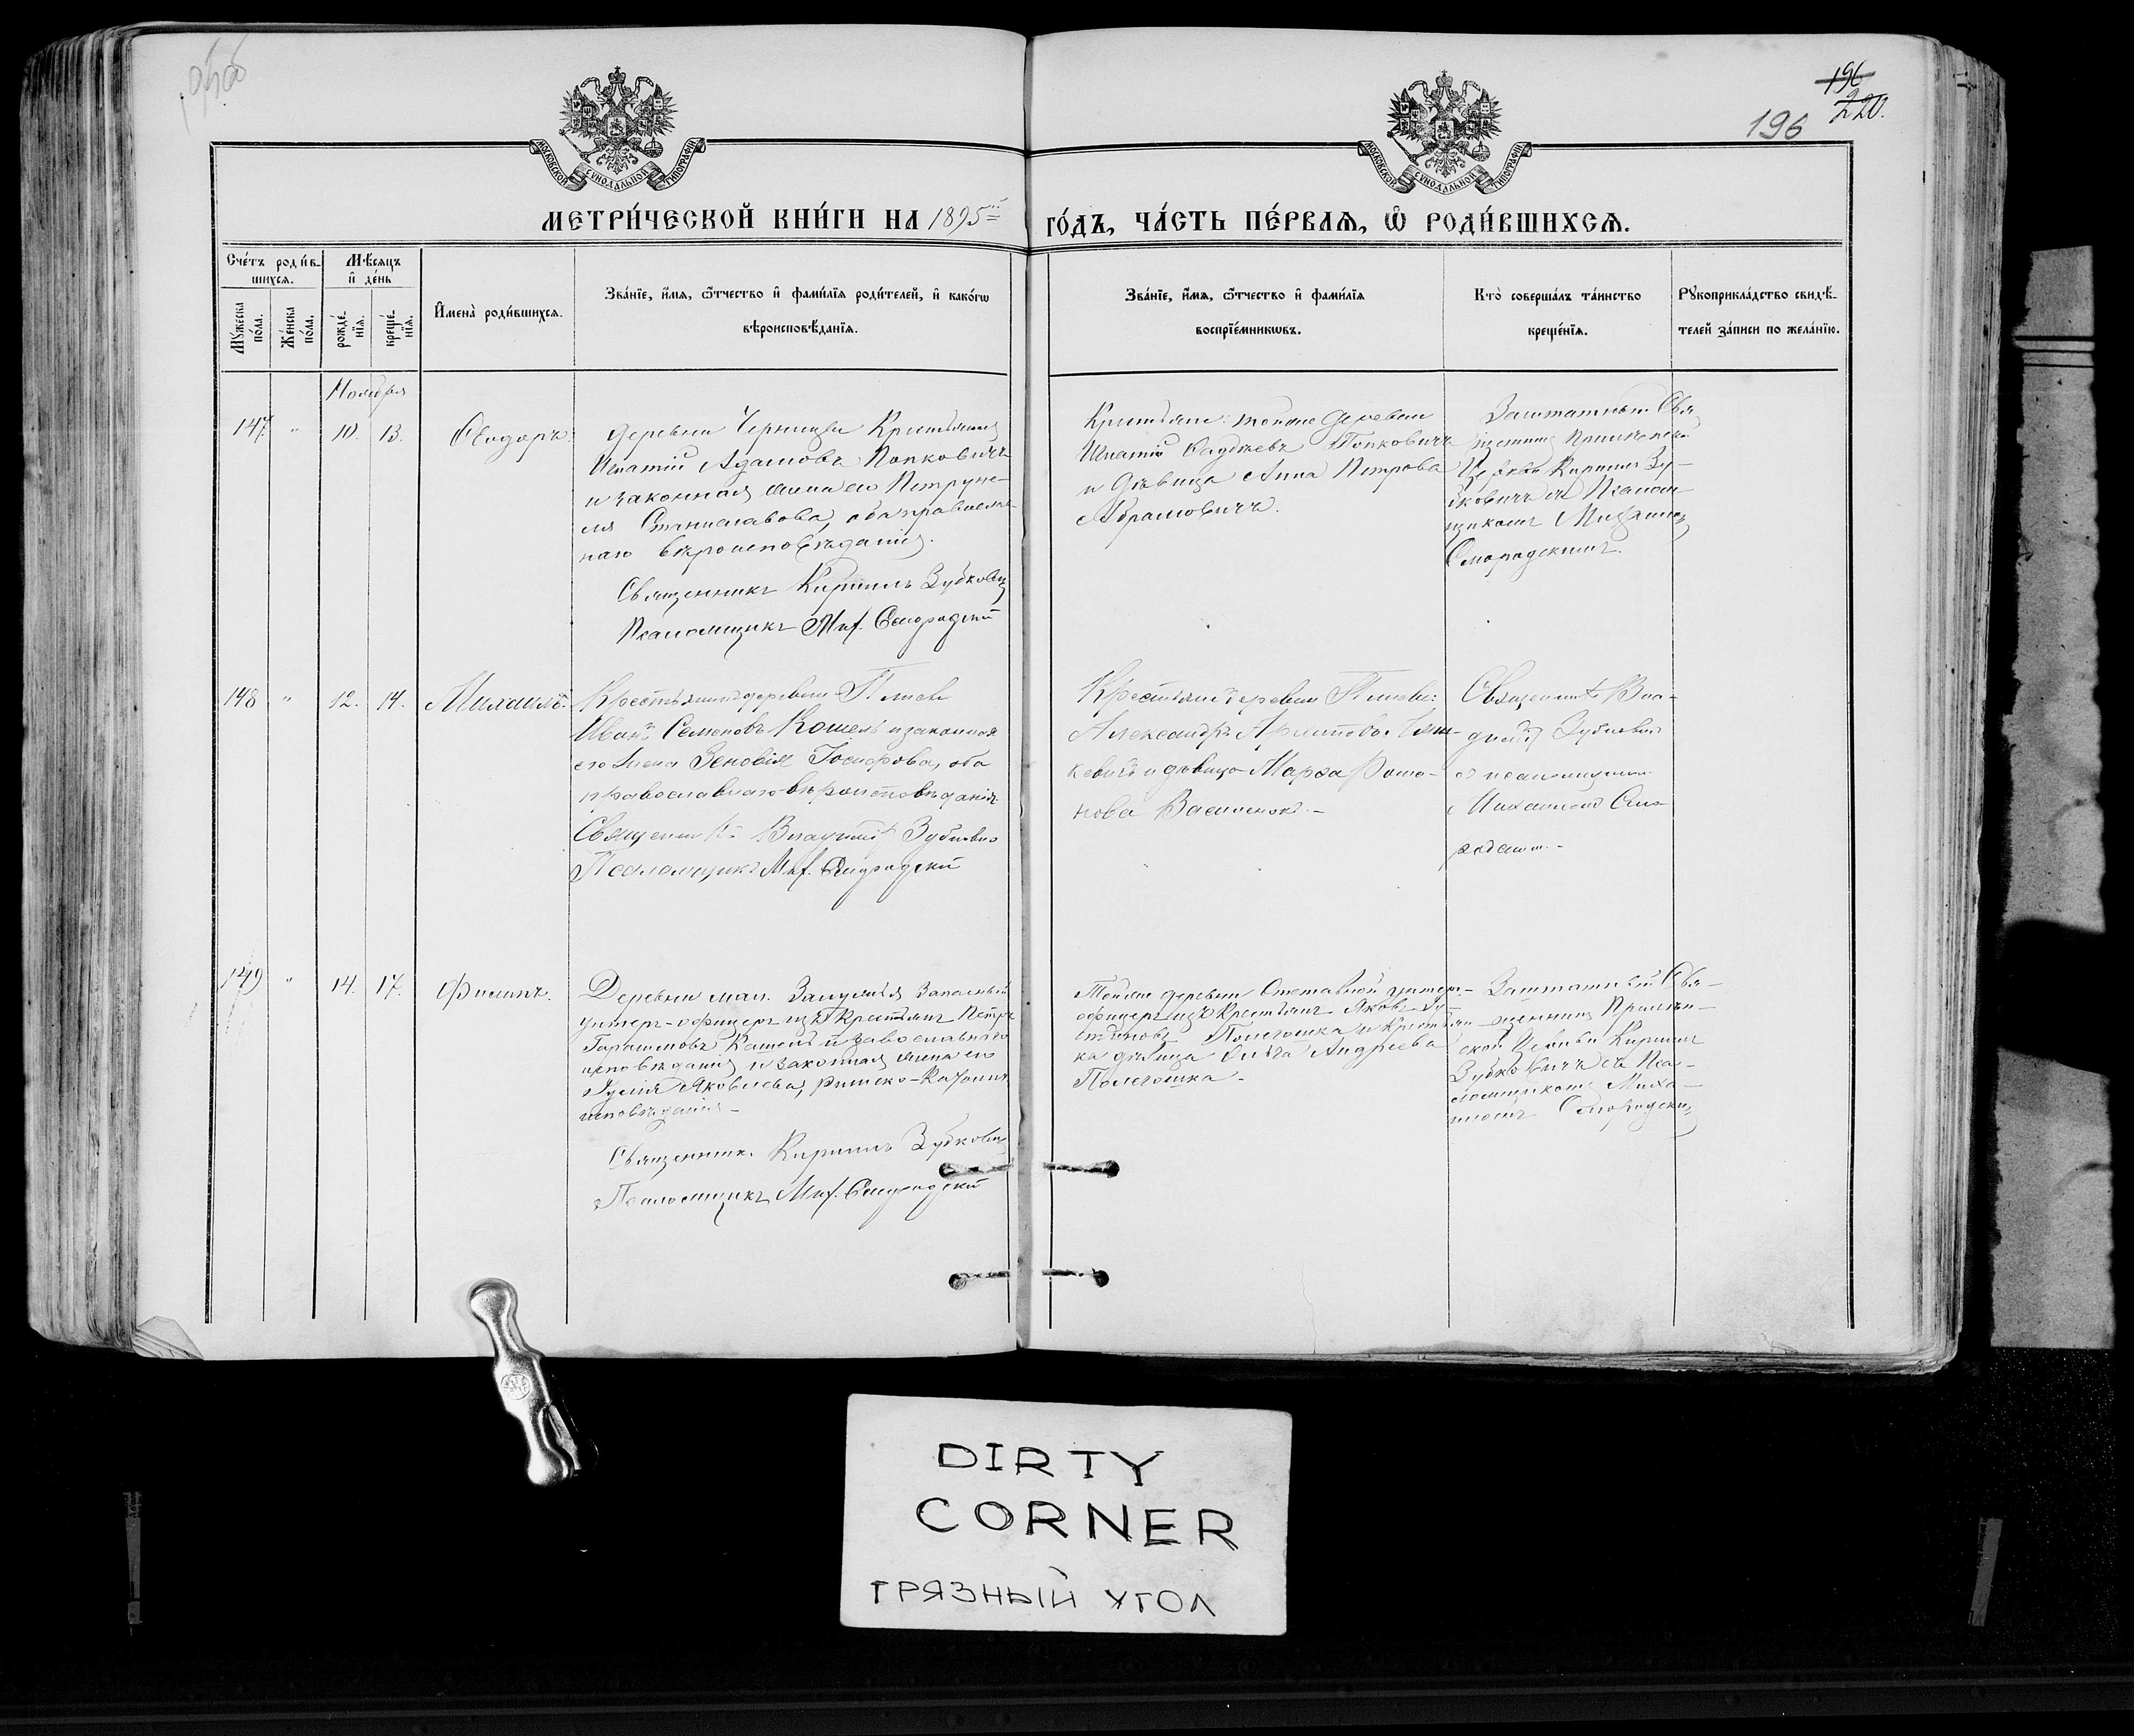 196
220.
196
МОСКОВСКОЙ СѴНОДАЛЬНОЙ ТИПОГРАФІИ
МОСКОВСКОЙ СѴНОДАЛЬНОЙ ТИПОГРАФІИ
МЕТРИ́ЧЕСКОЙ КНИ́ГИ НА 1895 ГО́ДЪ, ЧА́СТЬ ПЕ́РВАѦ, Ѡ҆ РОДИ́ВШИХСѦ.
Сче́тъ роди́в-
шихсѧ.
Мꙋ́жеска
по́ла.
Же́нска
по́ла.
Мѣ́сѧцъ
и҆ де́нь
рожде́-
нїѧ.
креще́-
нїѧ.
И҆мена̀ роди́вшихсѧ.
Зва́нїе, и҆́мѧ, ѻ҆́тчество и҆ фами́лїѧ роди́телей, и҆ како́гѡ
вѣроисповѣ́данїѧ.
Зва́нїе, и҆́мѧ, ѻ҆́тчество и҆ фами́лїѧ
воспрїе́мникѡвъ.
Кто̀ соверша́лъ та́инство
креще́нїѧ.
Рꙋкоприкла́дство свидѣ́-
телей за́писи по жела́нїю.
Ноября
147. " 10. 13. Ѳеодоръ.
деревни Черницы Крестьянинъ
Игнатій Адамовъ Попковичъ
и законная жена его Петруне-
ля Станиславова, оба православ-
наго вѣроисповѣданія.
Священникъ Кириллъ Зубковичъ
Псаломщикъ Мих. Смородскій
Крестьяне: тойже деревни
Игнатій Попковичъ
и дѣвица Анна Петрова
Абрамовичъ.
Заштатный Свя-
щенникъ
Церкви Кириллъ Зу-
бковичъ съ Псалом-
щикомъ Михаиломъ
Смородскимъ.
148 " 12. 14. Михаилъ.
Крестьянинъ деревни
Иванъ Семеновъ Кошель и законная
его жена Зеновія оба
православнаго вѣроисповѣданія.
Священникъ Владиміръ Зубковичъ
Псаломщикъ Мих. Смородскій
Крестьяне деревни
Александръ
кевичъ и дѣвица Марѳа Рома-
нова
Священникъ Вла-
диміръ Зубковичъ
съ псаломщикомъ
Михаиломъ Смо-
149 " 14. 17. Филипъ.
Деревни Запасный
унтеръ-офицеръ изъ Крестьянъ Петръ
Гарасимовъ Кошель православнаго
исповѣданія и законная жена его
Юлія Яковлева, римско-католич.
исповѣданія -
Священникъ Кириллъ Зубковичъ
Псаломщикъ Мих. Смородскій
Тойже деревни Отставной унтеръ-
офицеръ изъ Крестьянъ Яковъ
и Крестьян-
ка дѣвица Ольга Андреева
Заштатный Свя-
щенникъ
ской Церкви Кириллъ
Зубковичъ съ Пса-
ломщикомъ Миха-
иломъ Смородскимъ
DIRTY
CORNER
ГРЯЗНЫЙ УГОЛ